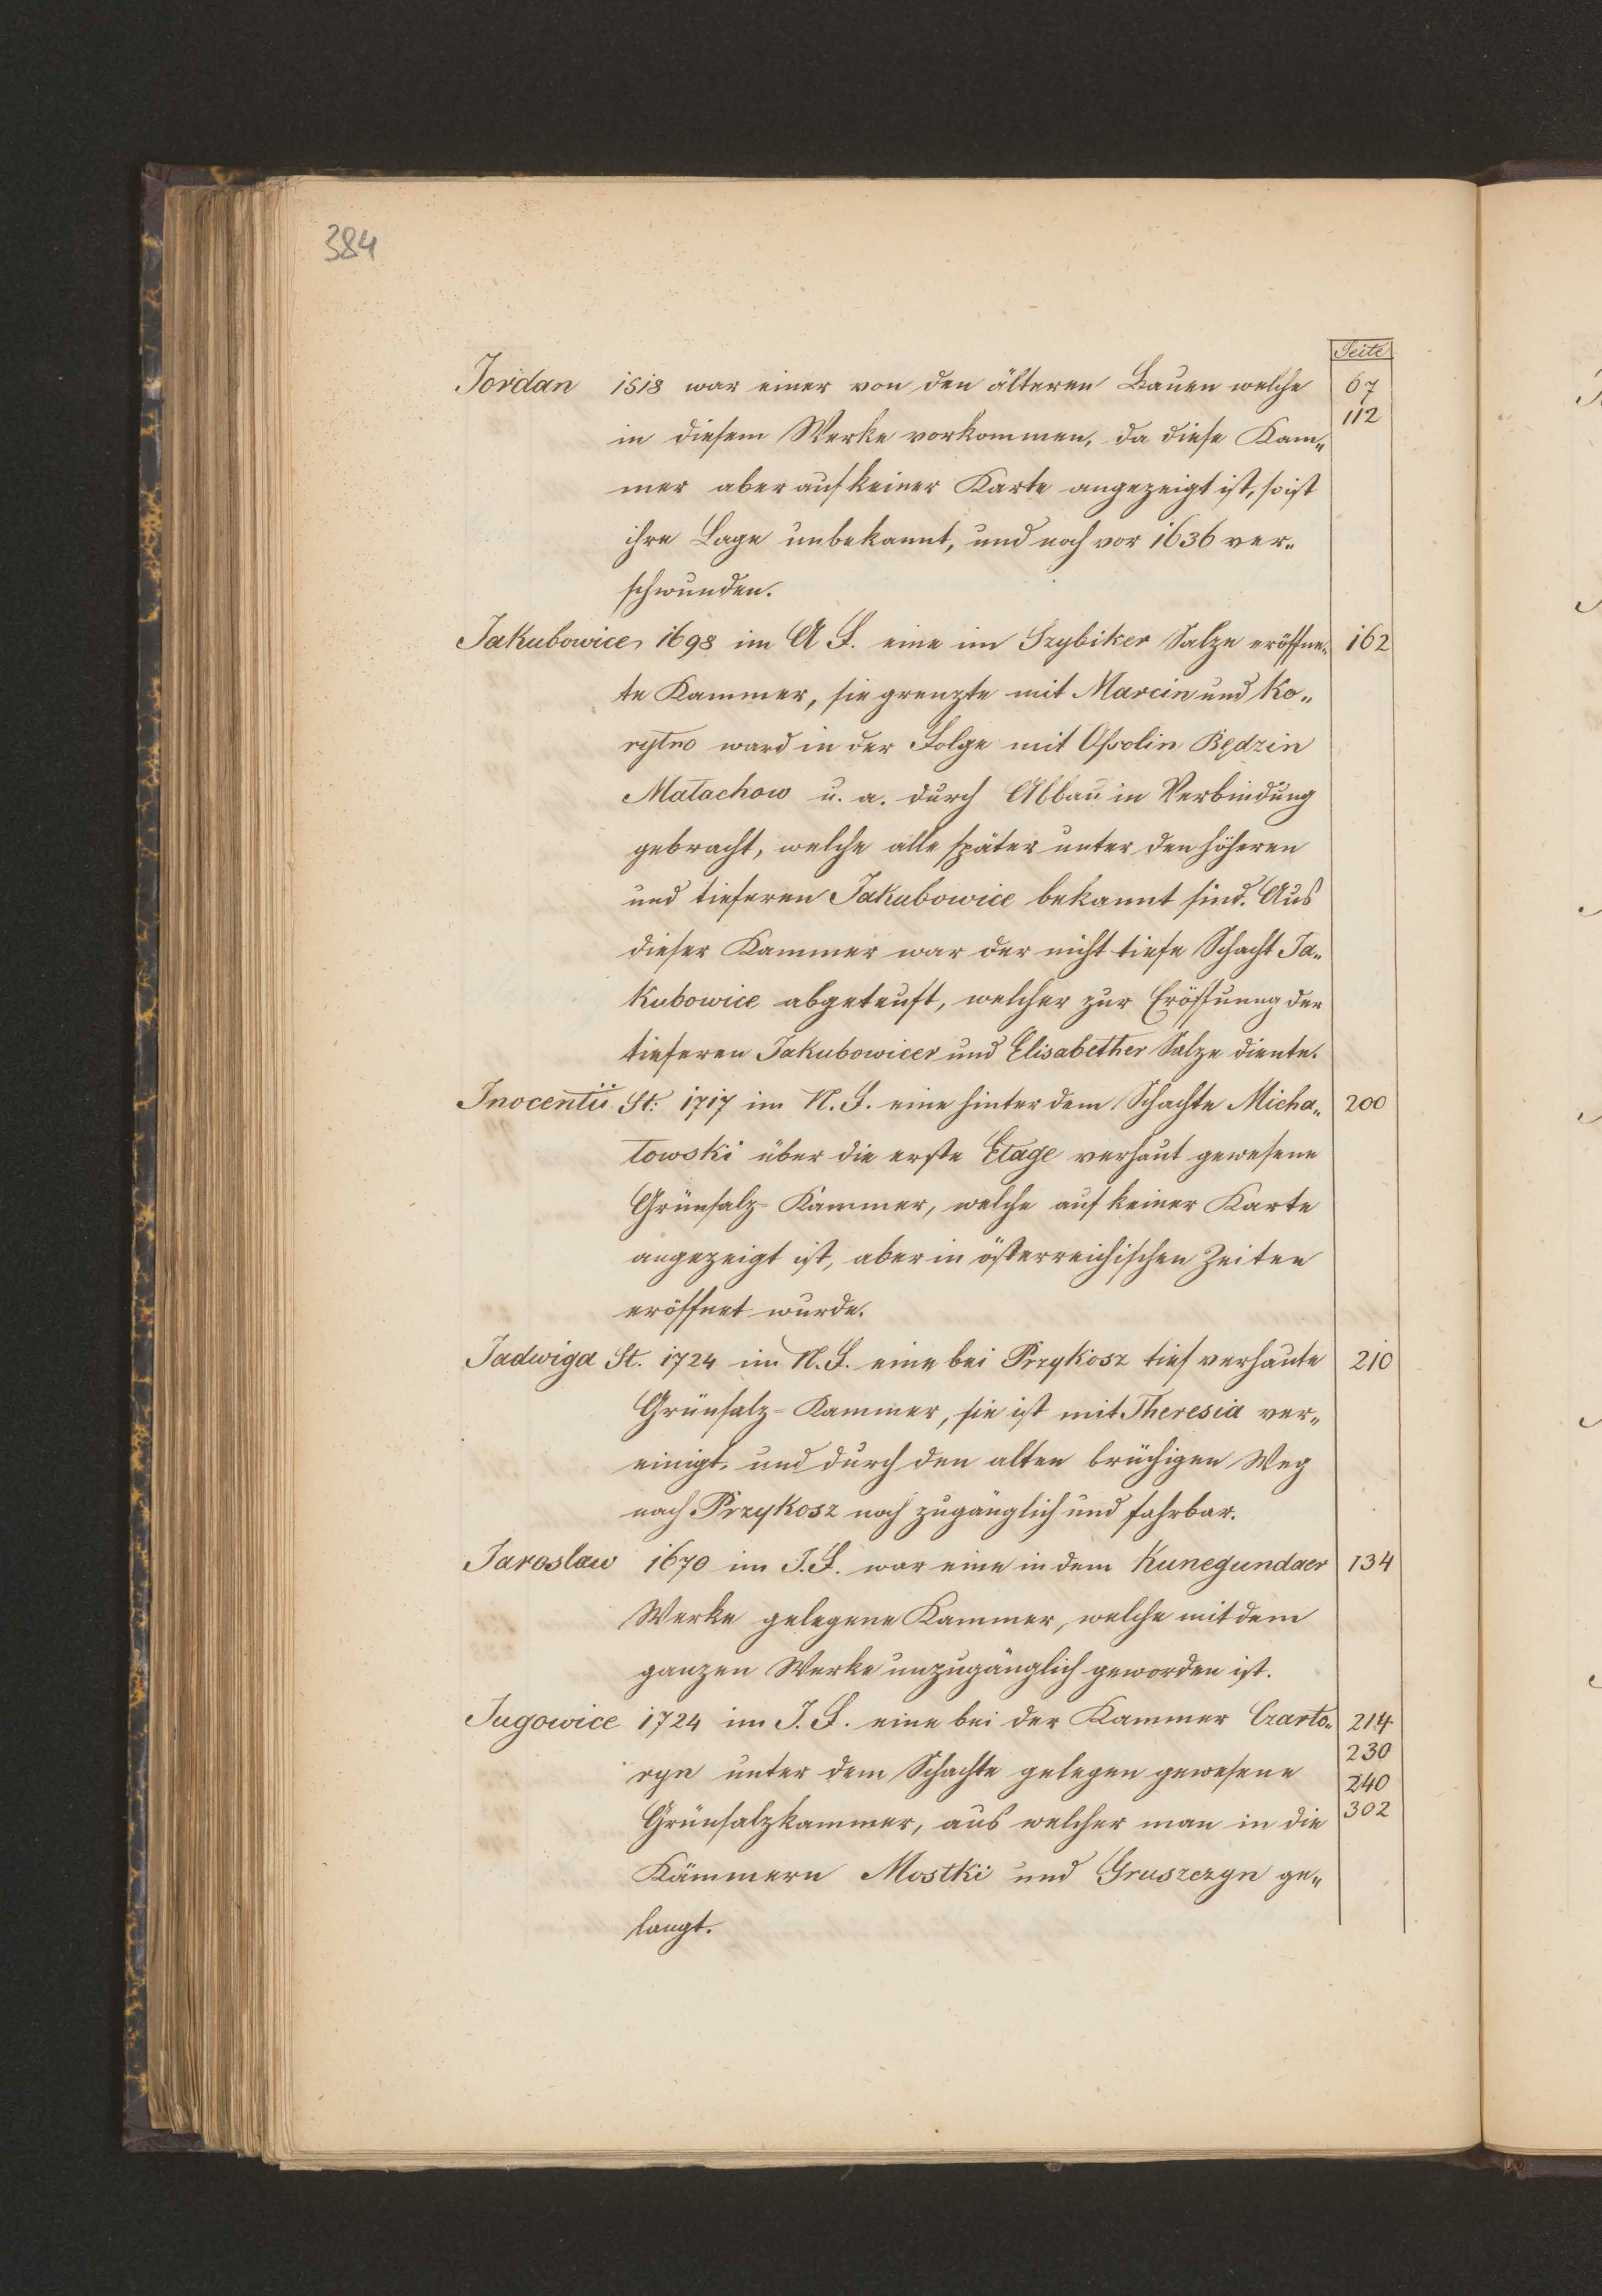 384
Seite
Jordan 1518 war einer von den älteren Bauen welche 67
112
in diesem Werke vorkommen, da diese Kam„
mer aber auf keiner Karte angezeigt ist, so ist
ihre Lage unbekannt, und noch vor 1636 ver„
schwunden.
Jakubowice 1698 im A F. eine im Szybiker Salze eröffne„ 162
te Kammer, sie grenzte mit Marcin und Ko„
rytno ward in der Folge mit Ossolin Będzin
Małachow u. a. durch Abbau in Verbindung
gebracht, welche alle später unter den höheren
und tieferen Jakubowice bekannt sind. Aus
dieser Kammer war der nicht tiefe Schacht Ja„
kubowice abgeteuft, welcher zur Eröffnung der
tieferen Jakubowicer und Elisabether Salze diente.
Inocentii St: 1717 im N. F. eine hinter dem Schachte Micha„ 200
łowski über die erste Etage verhaut gewesene
Grünsalz-Kammer, welche auf keiner Karte
angezeigt ist, aber in österreichischen Zeiten
eröffnet wurde.
Jadwiga St. 1724 im N. F. eine bei Przykosz tief verhaute 210
Grünsalz-Kammer, sie ist mit Theresia ver„
einigt, und durch den alten brüchigen Weg
nach Przykosz noch zugänglich und fahrbar.
Jaroslaw 1670 im J. F. war eine in dem Kunegundaer 134
Werke gelegene Kammer, welche mit dem
ganzen Werke unzugänglich geworden ist.
Jugowice 1724 im J. F. eine bei der Kammer Czarto„ 214
230
ryn unter dem Schachte gelegen gewesene
240
Grünsalzkammer, aus welcher man in die 302
Kämmern Mostki und Gruszczyn ge„
langt.